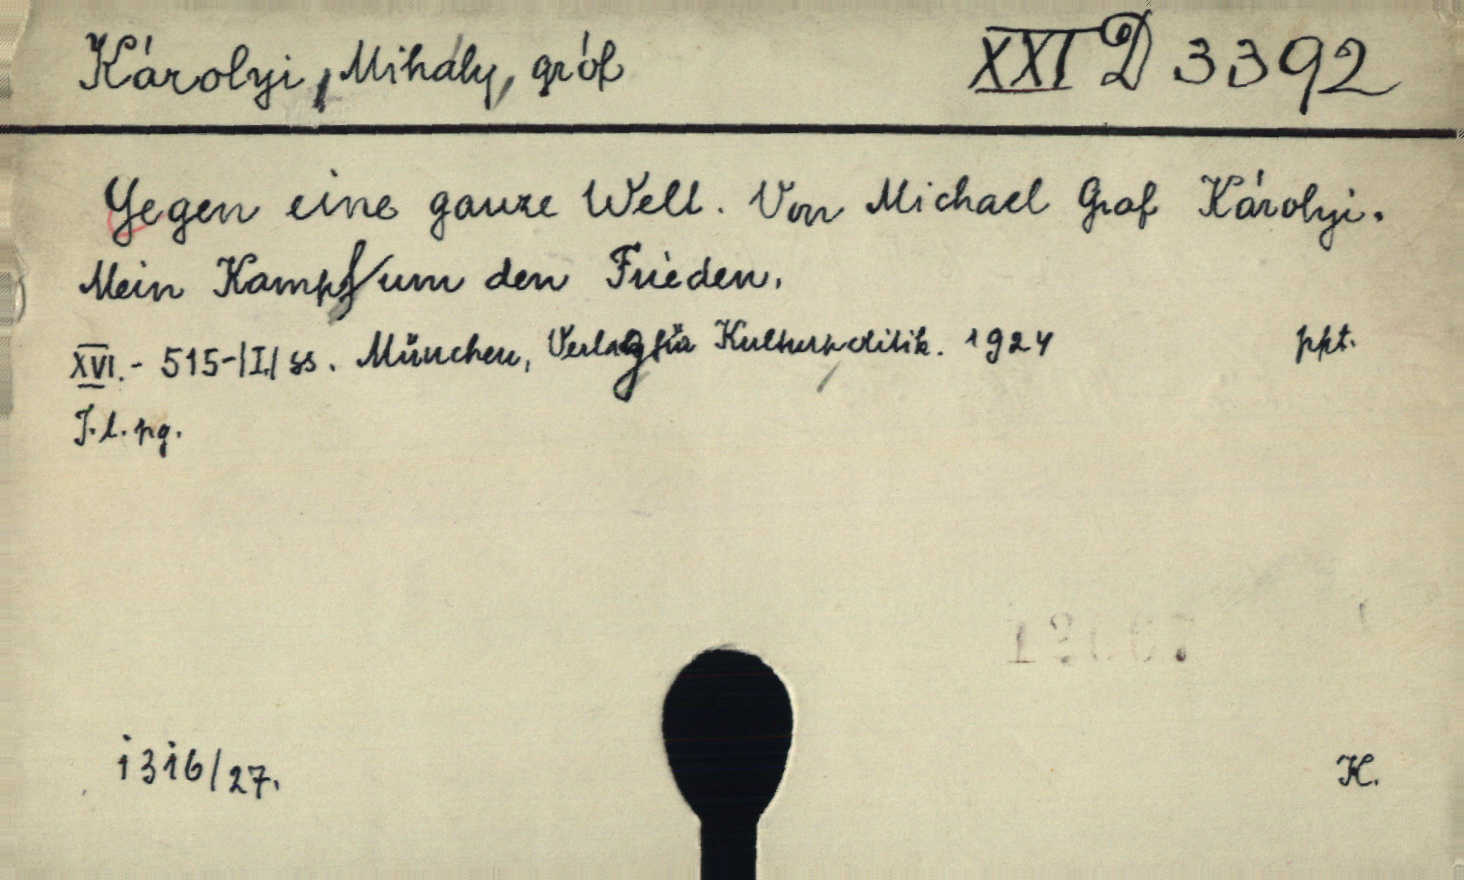 Károlyi, Mihály, gróf XXI D 3392
Gegen eine ganze Welt. Von Michael Graf Károlyi.
Mein Kampf um den Frieden.
XVI.- 515-/I/ ss. München, Verlag für Kulturpolitik. 1924 ppt.
J.l.pg.
1316/27. K.